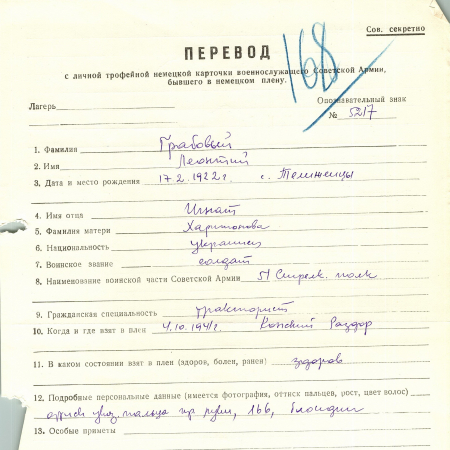 Сов. секретно
168
ПЕРЕВОД
с личной трофейной немецкой карточки военнослужащего Советской Армии,
бывшего в немецком плену.
Лагерь
Опознавательный знак
№ 5217
1. Фамилия Грабовый
2. Имя Леонтий
3. Дата и место рождения 17.2.1922г. с. Телиженцы
4. Имя отца Игнат
5. Фамилия матери Харитонова
6. Национальность украинец
7. Воинское звание солдат
8. Наименование воинской части Советской Армии 51 Стрелк. полк
9. Гражданская специальность тракторист
10. Когда и где взят в плен 4.10.1941г. Конский Раздор
11. В каком состоянии взят в плен (здоров, болен, ранен) здоров
12. Подробные персональные данные (имеется фотография, оттиск пальцев, рост, цвет волос)
оттиск указ. пальца пр. руки, 166, блондин
13. Особые приметы